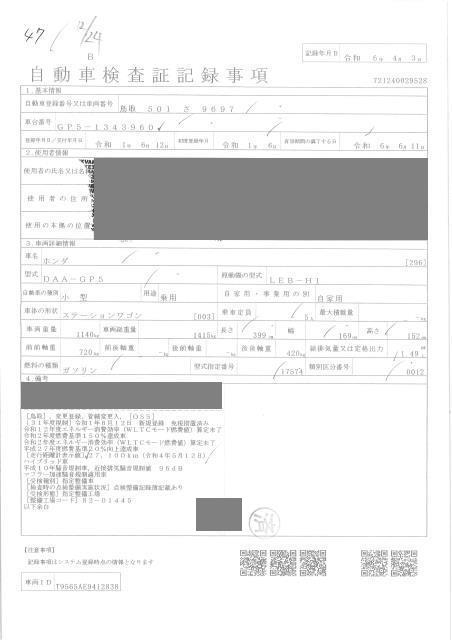 47 / 2/24
B
記録年月日 令和 6年 4月 3日
自動車検査証記録事項
721240029528
1.基本情報
自動車登録番号又は車両番号 鳥取 501 さ 9697
車台番号 GP5-1343960
登録年月日/交付年月日 令和 1年 6月 12日 初度登録年月 令和 1年 6月 有効期間の満了する日 令和 6年 6月 11日
2.使用者情報
使用者の氏名又は名
使用者の住所
使用の本拠の位置
3.車両詳細情報
車名 ホンダ [296]
型式 DAA-GP5 原動機の型式 LEB-H1
自動車の種別 小型 用途 乗用 自家用・事業用の別 自家用
車体の形状 ステーションワゴン [003] 乗車定員 5人 最大積載量 -kg
車両重量 1140kg 車両総重量 1415kg 長さ 399cm 幅 169cm 高さ 152cm
前前軸重 720kg 前後軸重 -kg 後前軸重 -kg 後後軸重 420kg 総排気量又は定格出力 1.49L
燃料の種類 ガソリン 型式指定番号 17574 類別区分番号 0012
4.備考
[鳥取],変更登録,管轄変更入,[OSS]
[31年度規制]令和1年6月12日 新規登録 免税措置済み
令和12年度エネルギー消費効率(WLTCモード燃費値)算定未了
令和2年度燃費基準150%達成車
令和2年度エネルギー消費効率(WLTCモード燃費値)算定未了
平成27年度燃費基準20%向上達成車
[走行距離計表示値]27,100km(令和4年5月12日)
ハイブリッド車
平成10年騒音規制車,近接排気騒音規制値 96dB
マフラー加速騒音規制適用車
[受検種別]指定整備車
[検査時の点検整備実施状況]点検整備記録簿記載あり
[受検形態]指定整備工場
[整備工場コード]82-01445
以下余白
[注意事項]
記録事項はシステム登録時点の情報となります
車両ID T9565AE9412838